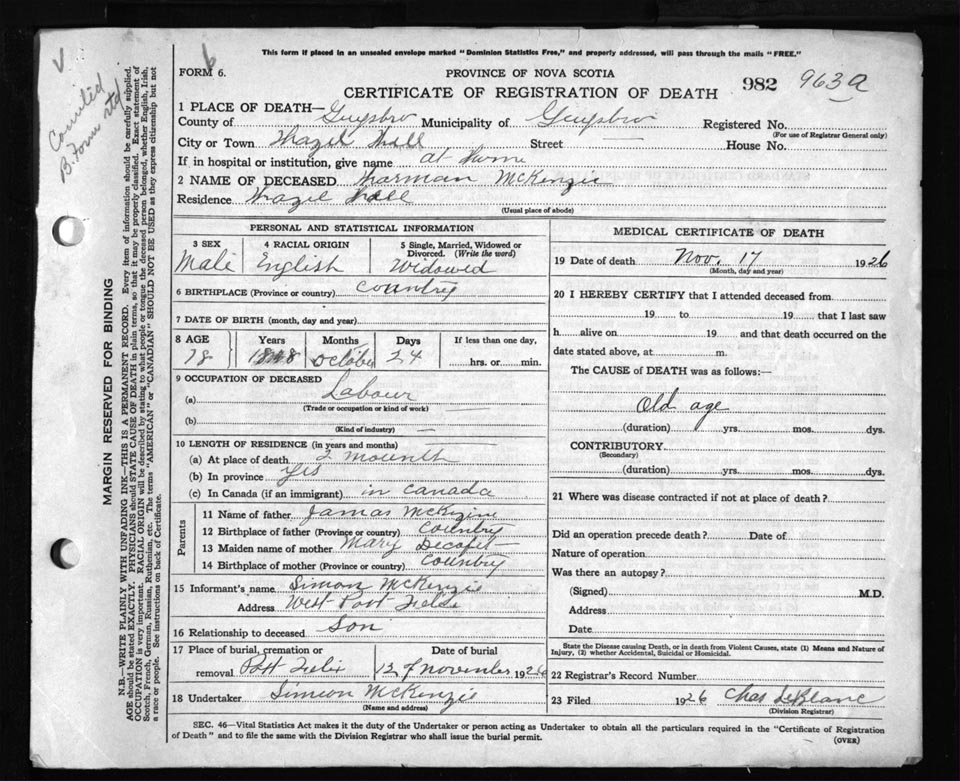 This form if placed in an unsealed envelope marked "Dominion Statistics Free," and properly addressed, will pass through the mails "FREE."
FORM 6.
6
PROVINCE OF NOVA SCOTIA
CERTIFICATE OF REGISTRATION OF DEATH
982 963a
V
Counted
B. Form std
MARGIN RESERVED FOR BINDING
N.B.—WRITE PLAINLY WITH UNFADING INK—THIS IS A PERMANENT RECORD. Every item of information should be carefully supplied.
AGE should be stated EXACTLY. PHYSICIANS should STATE CAUSE OF DEATH in plain terms, so that it may be properly classified. Exact statement of
OCCUPATION is very important. RACIAL ORIGIN will be described by stating to what people or tongue the deceased person belonged, whether English, Irish,
Scotch, French, German, Russian, Ruthenian, etc. The terms "AMERICAN" or "CANADIAN" SHOULD NOT BE USED as they express citizenship but not
a race or people. See instructions on back of Certificate.
1 PLACE OF DEATH—
County of Guysbro Municipality of Guysbro Registered No.
(For use of Registrar General only)
City or Town Hazel Hill Street — House No.
If in hospital or institution, give name at home
2 NAME OF DECEASED Harman McKenzie
Residence Hazel Hill
(Usual place of abode)
PERSONAL AND STATISTICAL INFORMATION
3 SEX 4 RACIAL ORIGIN 5 Single, Married, Widowed or
Divorced. (Write the word)
Male English Widowed
6 BIRTHPLACE (Province or country) Country
7 DATE OF BIRTH (month, day and year)
8 AGE Years Months Days If less than one day,
78 1848 October 24 hrs. or min.
9 OCCUPATION OF DECEASED
(a) Labour
(Trade or occupation or kind of work)
(b) —
(Kind of industry)
10 LENGTH OF RESIDENCE (in years and months)
(a) At place of death 2 mounth
(b) In province yes
(c) In Canada (if an immigrant) in canada
Parents
11 Name of father Jamas McKizine
12 Birthplace of father (Province or country) Country
13 Maiden name of mother Mary
14 Birthplace of mother (Province or country) Country
15 Informant's name Simon McKenzie
Address West Port Felix
16 Relationship to deceased Son
17 Place of burial, cremation or Date of burial
removal Port Felix 12 of November 1926
18 Undertaker Simeon McKenzie
(Name and address)
MEDICAL CERTIFICATE OF DEATH
19 Date of death Nov. 17 1926
(Month, day and year)
20 I HEREBY CERTIFY that I attended deceased from
19 to 19 that I last saw
h alive on 19 and that death occurred on the
date stated above, at m.
The CAUSE of DEATH was as follows:—
Old age
(duration) yrs. mos. dys.
CONTRIBUTORY
(Secondary)
(duration) yrs. mos. dys.
21 Where was disease contracted if not at place of death?
Did an operation precede death? Date of
Nature of operation
Was there an autopsy?
(Signed) M.D.
Address
Date
State the Disease causing Death, or in death from Violent Causes, state (1) Means and Nature of
Injury, (2) whether Accidental, Suicidal or Homicidal.
22 Registrar's Record Number
23 Filed 1926 Chas LeBlanc
(Division Registrar)
SEC. 46—Vital Statistics Act makes it the duty of the Undertaker or person acting as Undertaker to obtain all the particulars required in the "Certificate of Registration
of Death" and to file the same with the Division Registrar who shall issue the burial permit.
(OVER)